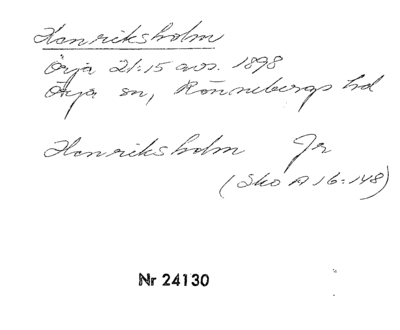 Henriksholm
Örja 21:15 avs. 1898
Örja sn, Rönnebergs hd
Henriksholm Jr
(Sko A 16:148)
Nr 24130